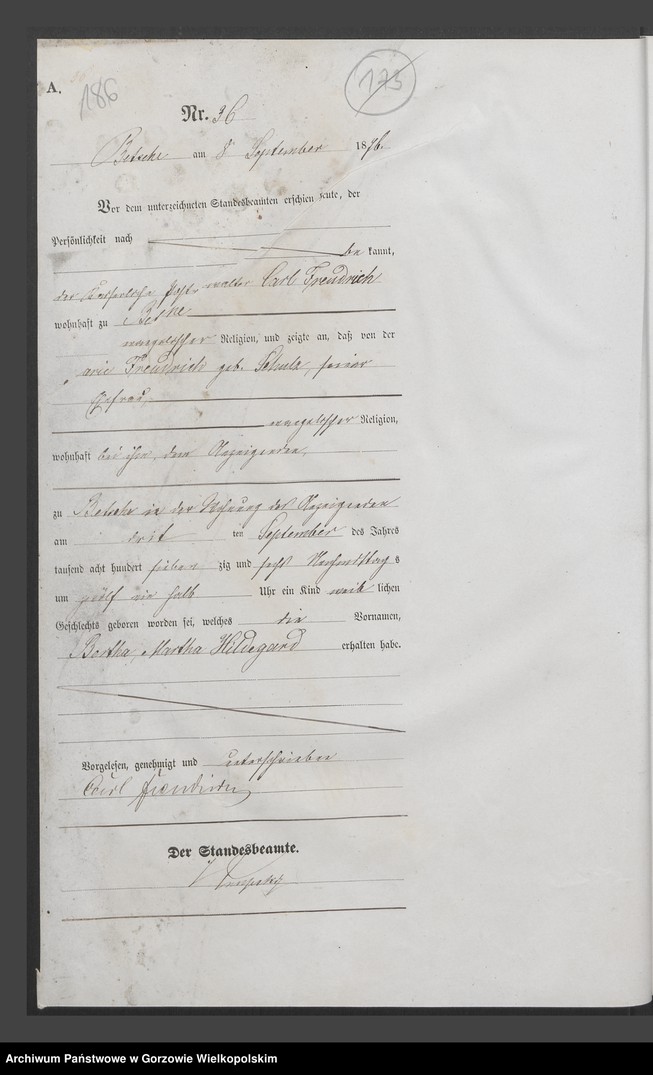 A.
186
173
Nr. 36
Betsche am 8 September 1876.
Vor dem unterzeichneten Standesbeamten erschien heute, der
Persönlichkeit nach
be kannt,
der Kaiserliche Post walter Carl Freudrich
wohnhaft zu Betsche
evangelischer Religion, und zeigte an, daß von der
Marie Freudrich geb. Schulz, seiner
Ehefrau,
evangelischer Religion,
wohnhaft bei ihm, dem Anzeigenden,
zu Betsche in der Wohnung des Anzeigenden
am drit ten September des Jahres
tausend acht hundert sieben zig und sechs Nachmittag s
um zwölf ein halb Uhr ein Kind weib lichen
Geschlechts geboren worden sei, welches die Vornamen,
Bertha Martha Hildegard erhalten habe.
Vorgelesen, genehmigt und unterschrieben
Carl Freudrich
Der Standesbeamte.
Archiwum Państwowe w Gorzowie Wielkopolskim